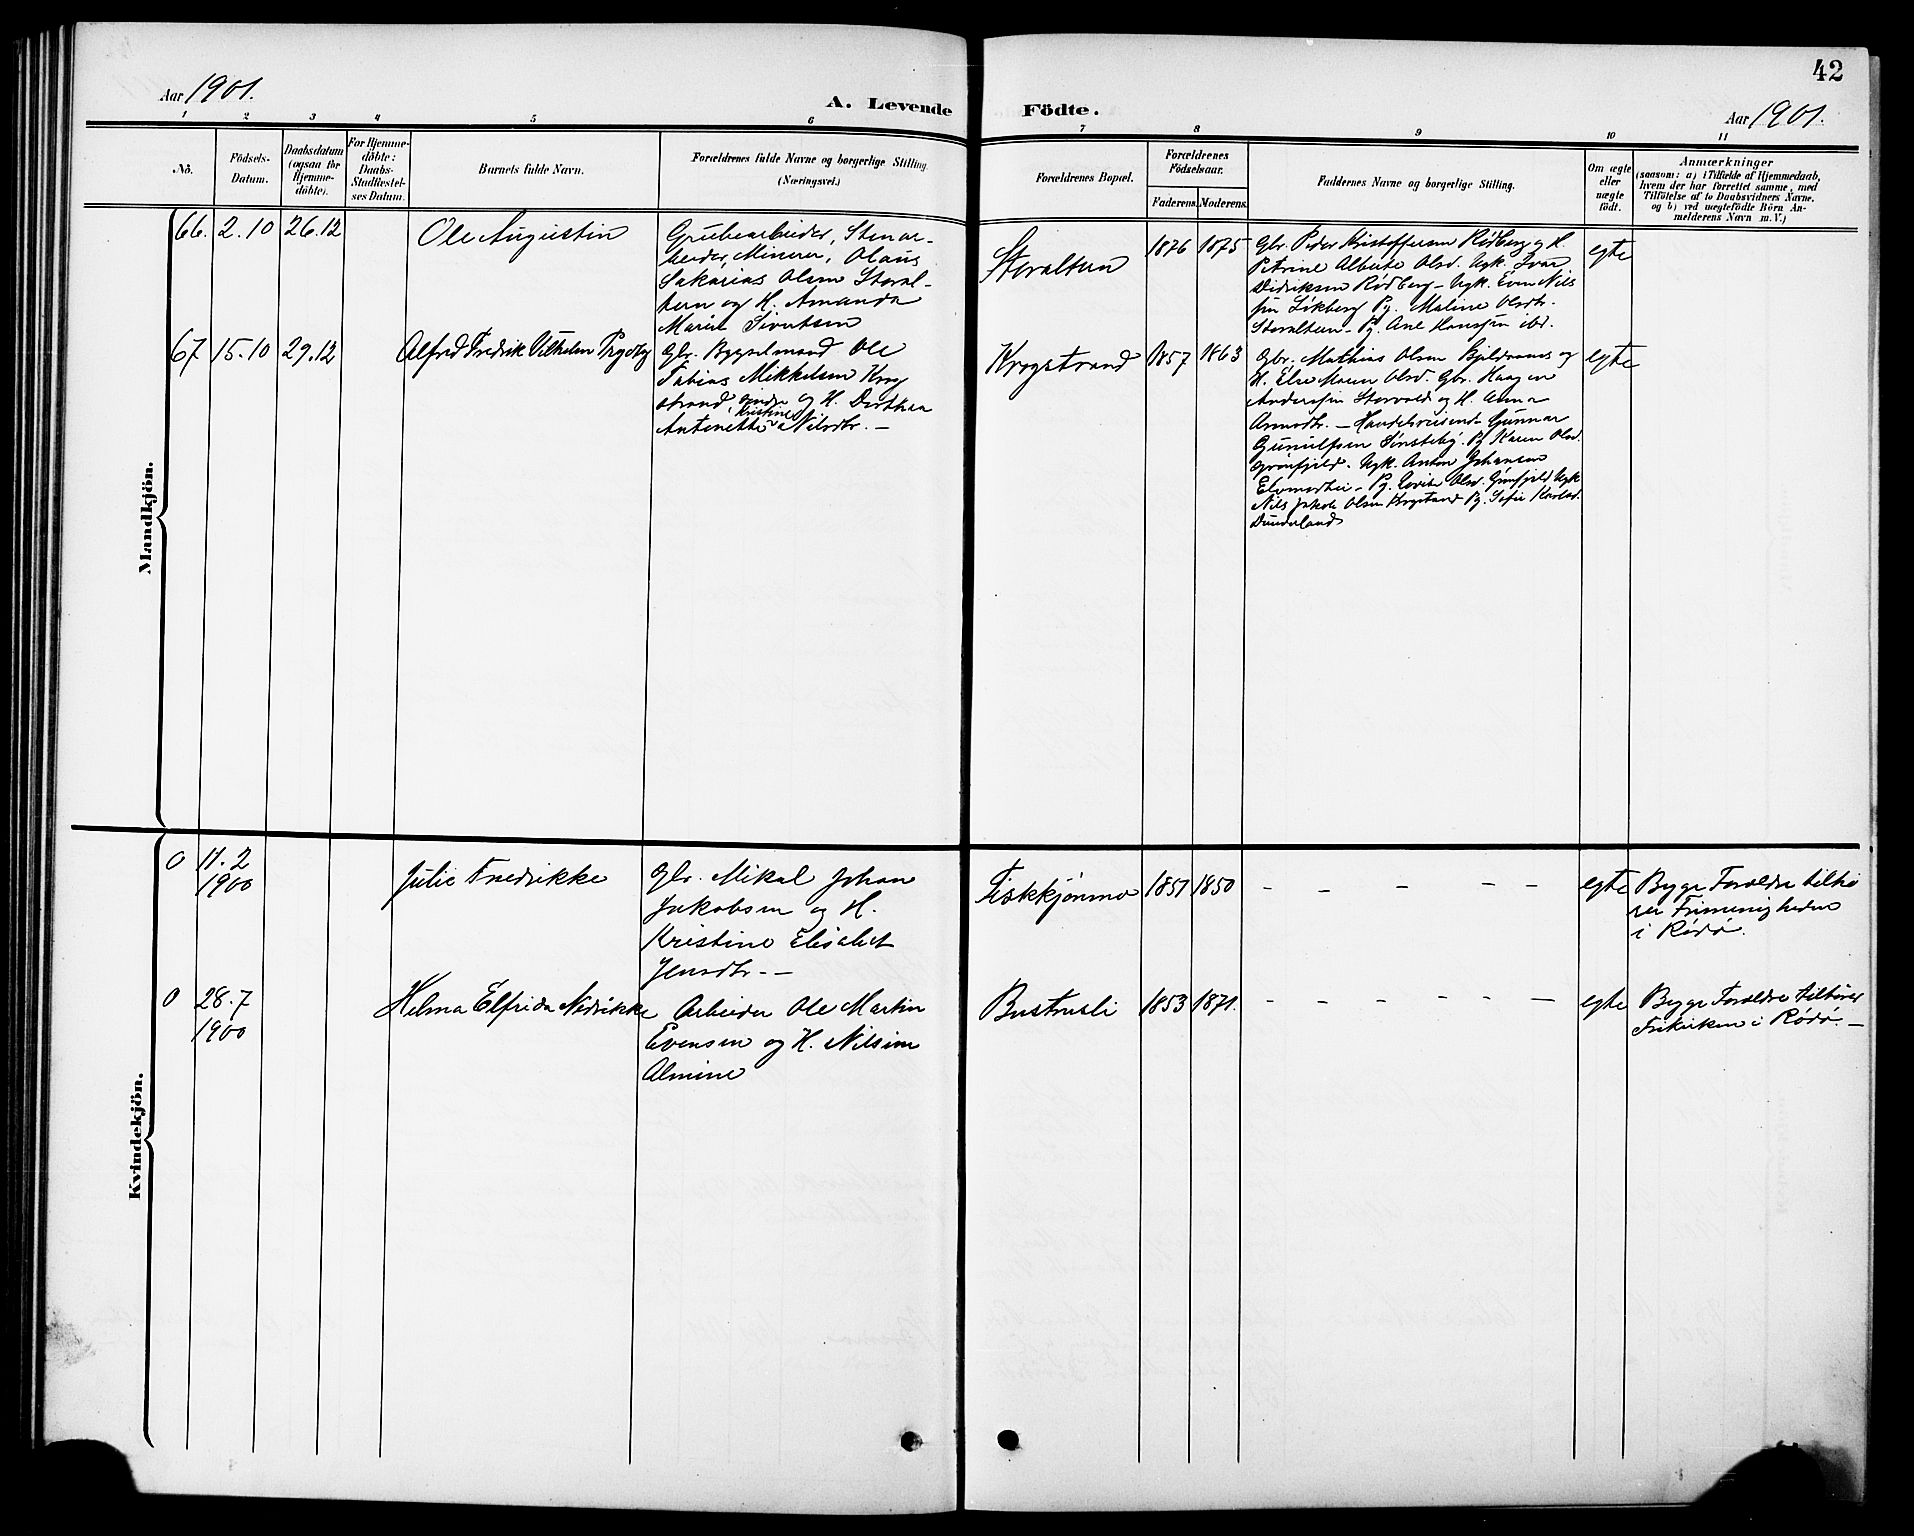 42
Aar 1901.
A. Levende Födte.
Aar 1901.
1 2 3 4 5 6 7 8 9 10 11
Nò.
Födsels-
Datum.
Daabsdatum
(ogsaa for
Hjemme-
döbte).
For Hjemme-
döbte:
Daabs-
Stadfæstel-
ses Datum.
Barnets fulde Navn.
Forældrenes fulde Navne og borgerlige Stilling.
(Næringsvei.)
Forældrenes Bopæl.
Forældrenes
Födselsaar.
Faderens. Moderens.
Faddernes Navne og borgerlige Stilling.
Om ægte
eller
uægte
födt.
Anmærkninger
(saasom: a) i Tilfælde af Hjemmedaab,
hvem der har forrettet samme, med
Tilföielse af to Daabsvidners Navne.
og b) ved uægtefödte Börn An-
melderens Navn m. V.)
Mandkjön.
66. 2.10 26.12
Ole Augustin
Grubearbeider, Stenar-
beider, Minerer, Olaus
Sakarias Olsen Storal-
tern og H. Amanda
Marie Sivertsen
Storaltern
1876 1875
Gbr. Peder Kristoffersen Rødberg og H.
Petrine Alberte Olsd. Ugk. Ivar
Didriksen Rødberg - Ugk. Even Nils
sen Pg. Maline Olsdtr.
Storaltern - Pg. Ane Hansen ibd.
egte
67 15.10 29.12
Alfred Fredrik Vilhelm
Gbr. Bygselmand Ole
Tobias Mikkelsen Krog
strand, og H. Dorthea
Kristine
Antonette Nilsdtr. -
Krogstrand
1857 1863
Gbr. Mathias Olsen Bjeldaanes og
H. Else Maren Olsd. Gbr. Haagen
Anderssen Storvold og H. Anna
- Handelsreisend Gunnar
Gunulfsen Tønsteby. Pg Karen Olsd.
Grønfjeld. Ugk. Anton Johansen
- Pg. Lovise Olsd. Grønfjeld Ugk
Nils Jakob Olsen Krogstrand Pg. Sofie Karlsd.
Dunderland
egte
Kvindekjön.
0 11.2
1900
Julie Fredrikke
Gbr. Mikal Johan
Jakobsen og H.
Kristine Elisabet
Jensdtr. -
Fiskkjønmo
1851 1850
- - - - -
egte
Begge Forældre tilhø
rer Frimenigheden
i Rødø.
0 28.7
1900
Helma Elfrida Nedrikke
Arbeider Ole Martin
Evensen og H. Nilsine
Almine
Bustnesli
1853 1871.
- - - - - -
egte
Begge Forældre tilhører
Frikirken i Rødø. -